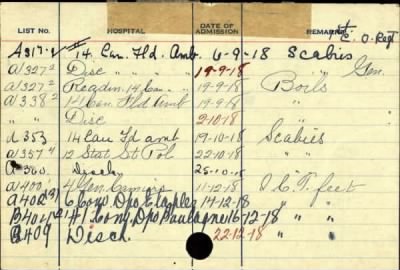 LIST NO. HOSPITAL DATE OF ADMISSION REMARKS
E. O. Regt
A317-1 14 Can. Fld. Amb. 6-9-18 Scabies
A1327 2 Disc " " " 19-9-18 " Gen.
A1327 2 Readm. 14 Can. " 19-9-18 Boils
A1338 2 14 Can Fld Amb 19-9-18 "
" Disc " 2-10-18 "
A353 14 Can Fd Amt 19-10-18 Scabies
A357 4 12 Stat St Pol 22-10-18 "
A360 Disch 25-10-18 "
A1400 4 Gen Camiers 11-12-18 I. C. T. feet
A402 (3) 6 Conv Dpo Etaples 14-12-18 " "
B404 12 7 Conv Dpo Boulogne 16-12-18 " "
B409 Disch. 22-12-18 " "